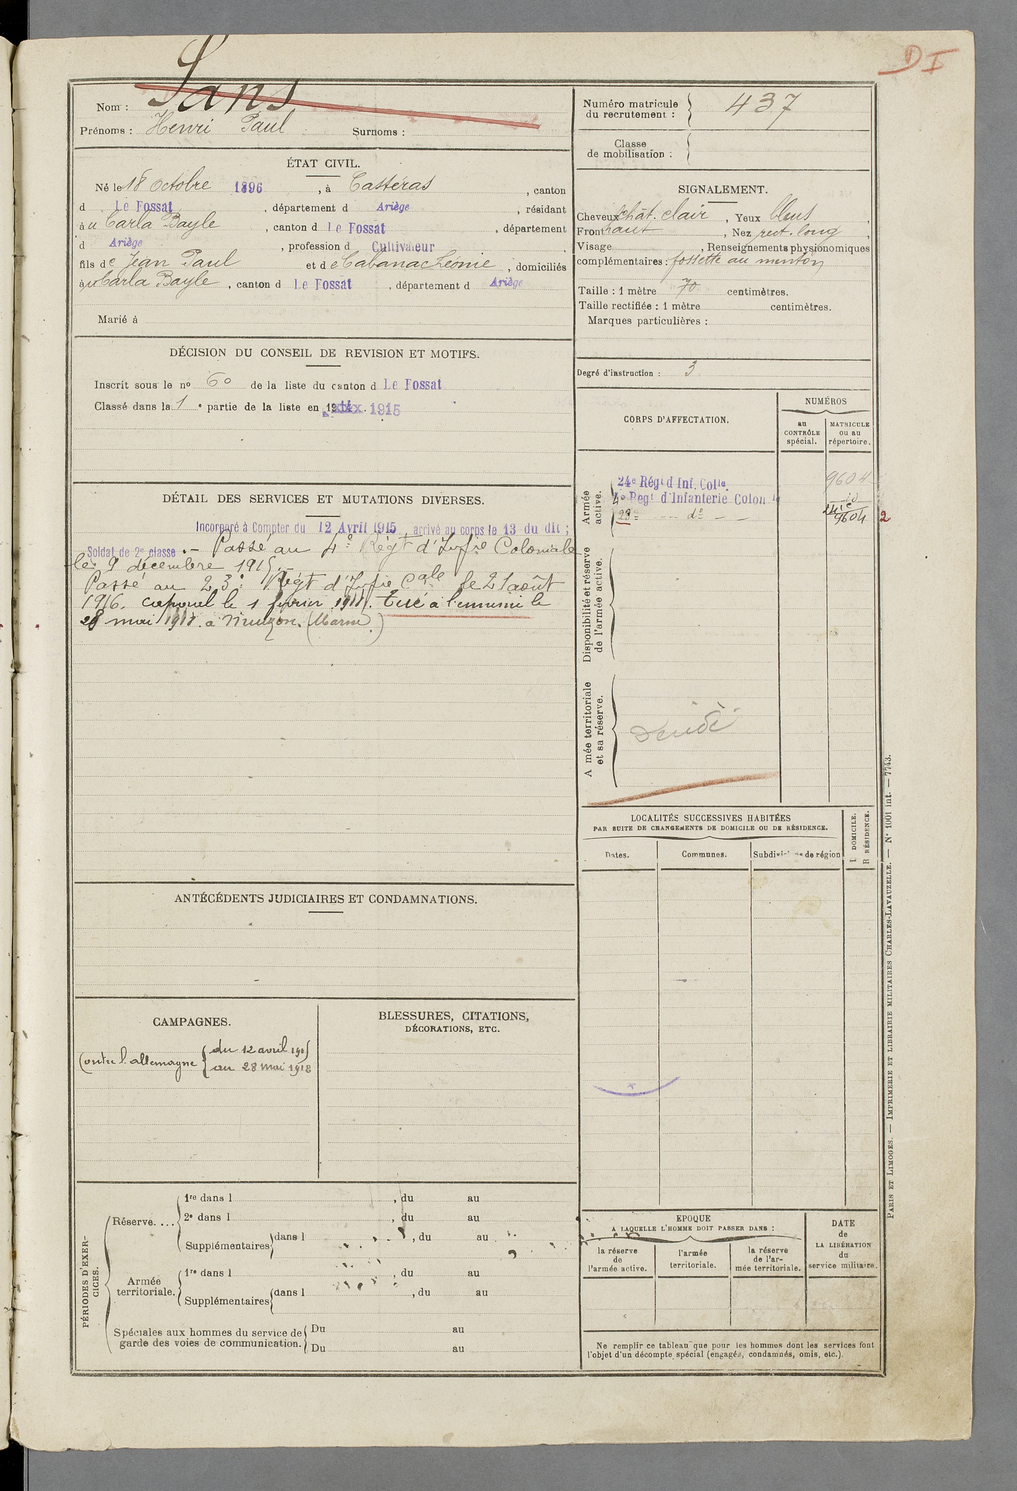 D I
Sans
Nom :
Prénoms : Henri Paul Surnoms :
Numéro matricule du recrutement : 437
Classe de mobilisation :
ÉTAT CIVIL.
Né le 18 Octobre 1896, à Castéras, canton
d Le Fossat, département d Ariège, résidant
à u Carla Bayle, canton d Le Fossat, département
d Ariège, profession d Cultivateur
fils de Jean Paul et de Cabanac Léonie, domiciliés
à u Carla Bayle, canton d Le Fossat, département d Ariège
Marié à
SIGNALEMENT.
Cheveux chât. clair, Yeux bleus,
Front haut, Nez rect. long,
Visage , Renseignements physionomiques
complémentaires : fossette au menton
Taille : 1 mètre 70 centimètres.
Taille rectifiée : 1 mètre centimètres.
Marques particulières :
Degré d'instruction : 3
DÉCISION DU CONSEIL DE REVISION ET MOTIFS.
Inscrit sous le no 60 de la liste du canton d Le Fossat
Classé dans la 1 e partie de la liste en 1915
DÉTAIL DES SERVICES ET MUTATIONS DIVERSES.
Incorporé à Compter du 12 Avril 1915, arrivé au corps le 13 du dit ;
Soldat de 2e classe. – Passé au 4e Régt d'Infie Coloniale
le 9 décembre 1915.
Passé au 23e Régt d'Infie Cale le 21 août
1916. Caporal le 1 février 1918. Tué à l'ennemi le
28 mai 1918 à (Marne)
CORPS D'AFFECTATION.
NUMÉROS
au CONTRÔLE spécial.
MATRICULE ou au répertoire.
Armée active.
24e Régt d'Inf. Colle.
4e Regt d'Infanterie Colon le
23e — do — —
9604
9604
2
Disponibilité et réserve de l'armée active.
A mée territoriale et sa réserve.
décédé
LOCALITÉS SUCCESSIVES HABITÉES
PAR SUITE DE CHANGEMENTS DE DOMICILE OU DE RÉSIDENCE.
Dates.
Communes.
Subdivisions de région
D DOMICILE.
R RÉSIDENCE.
ANTÉCÉDENTS JUDICIAIRES ET CONDAMNATIONS.
CAMPAGNES.
Contre l'allemagne { du 12 avril 1915
au 28 mai 1918
BLESSURES, CITATIONS,
DÉCORATIONS, ETC.
PÉRIODES D'EXERCICES.
Réserve....
1re dans l , du au
2e dans l , du au
Supplémentaires dans l , du au
Armée territoriale.
1re dans l , du au
Supplémentaires dans l , du au
Spéciales aux hommes du service de garde des voies de communication.
Du au
Du au
EPOQUE
A LAQUELLE L'HOMME DOIT PASSER DANS :
la réserve de l'armée active.
l'armée territoriale.
la réserve de l'armée territoriale.
DATE
de
LA LIBÉRATION
du
service militaire.
Ne remplir ce tableau que pour les hommes dont les services font
l'objet d'un décompte spécial (engagés, condamnés, omis, etc.).
PARIS ET LIMOGES. — IMPRIMERIE ET LIBRAIRIE MILITAIRES CHARLES-LAVAUZELLE. — N° 1001 int. — 7743.